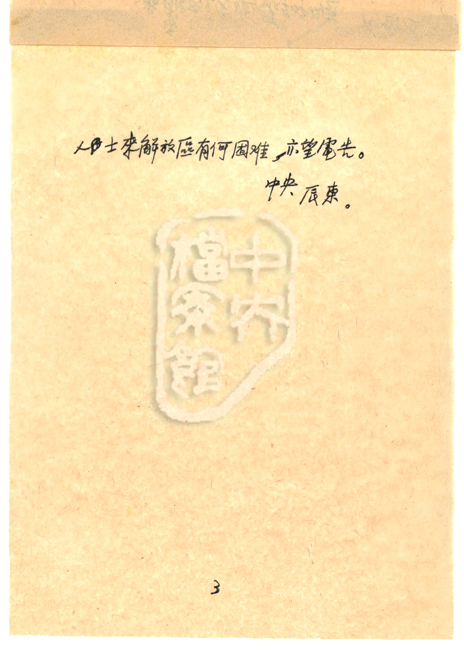 人士来解放區有何困难，亦望電告。
中央 辰東。
中央
檔案館
3